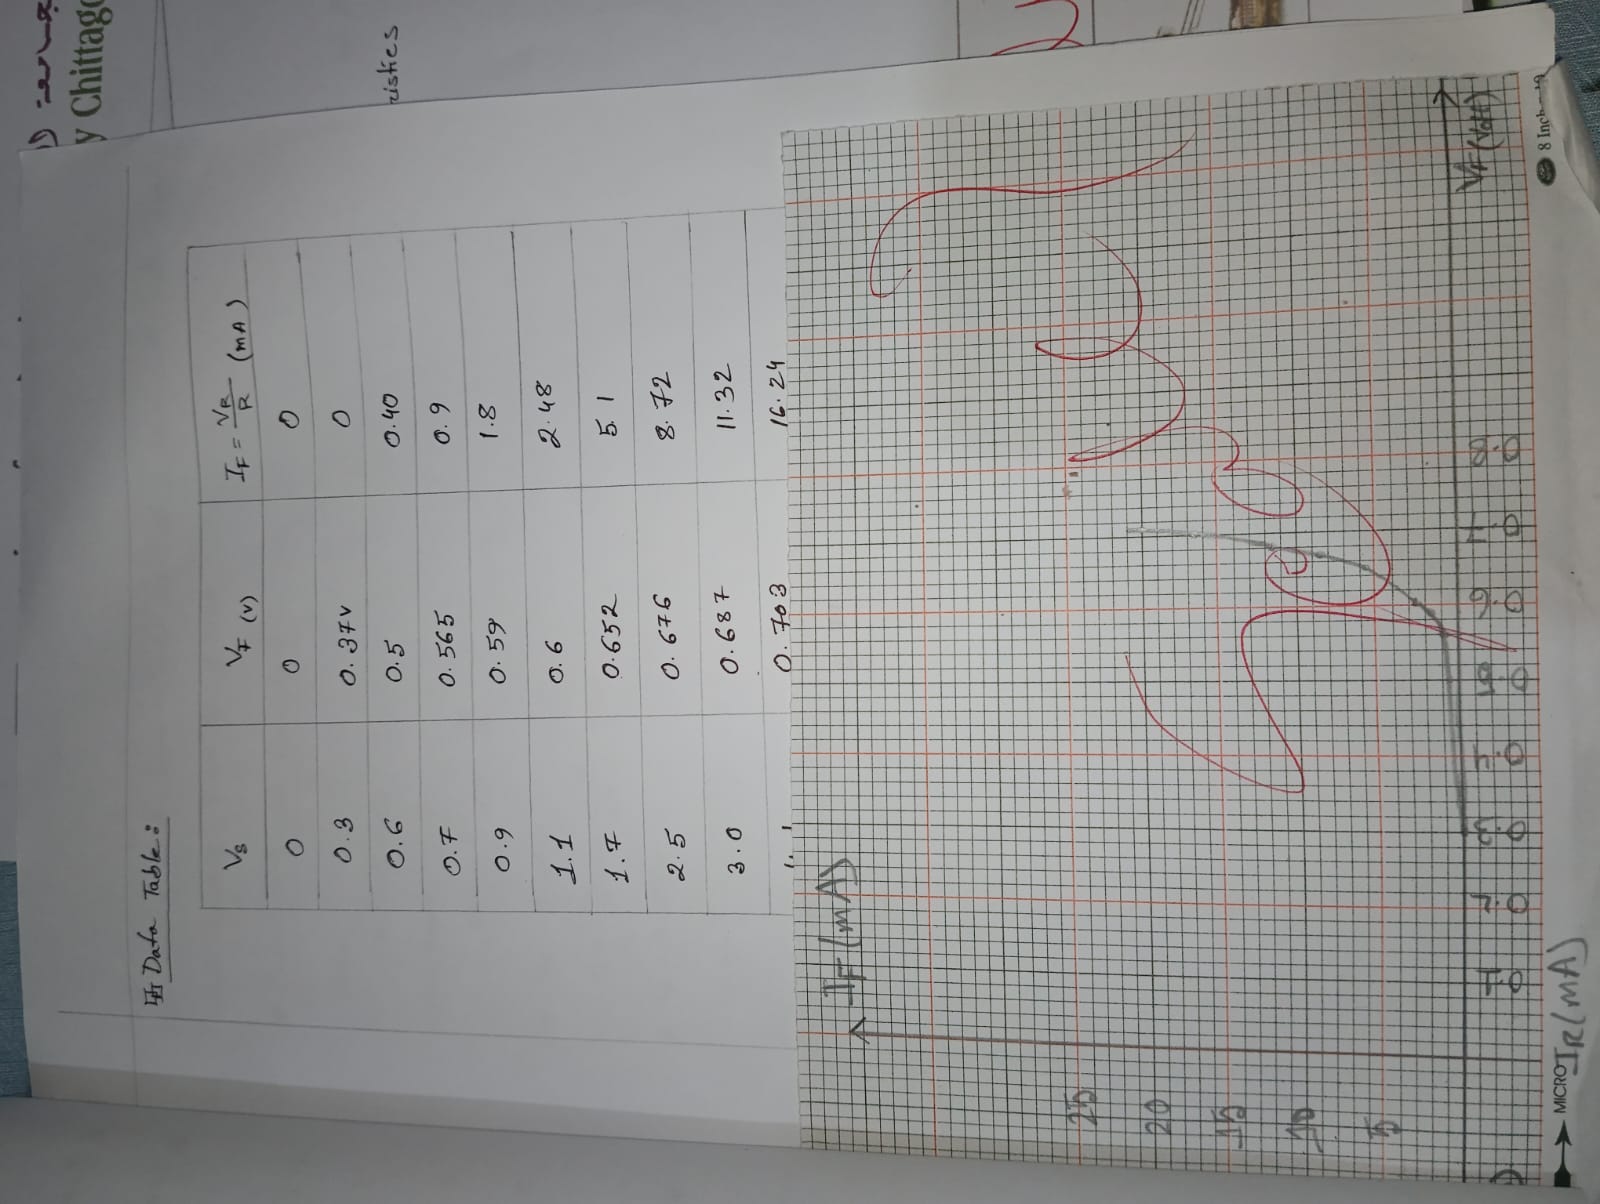 y Chittago
ristics
Data Table:
Vs VF (v) IF = VR/R (mA)
0 0 0
0.3 0.37v 0
0.6 0.5 0.40
0.7 0.565 0.9
0.9 0.59 1.8
1.1 0.6 2.48
1.7 0.652 5.1
2.5 0.676 8.72
3.0 0.687 11.32
0.703 16.24
IF (mA)
25
20
15
10
5
0.1 0.2 0.3 0.4 0.5 0.6 0.7 0.8
VF (Volt)
MICRO
8 Inch
IR (mA)